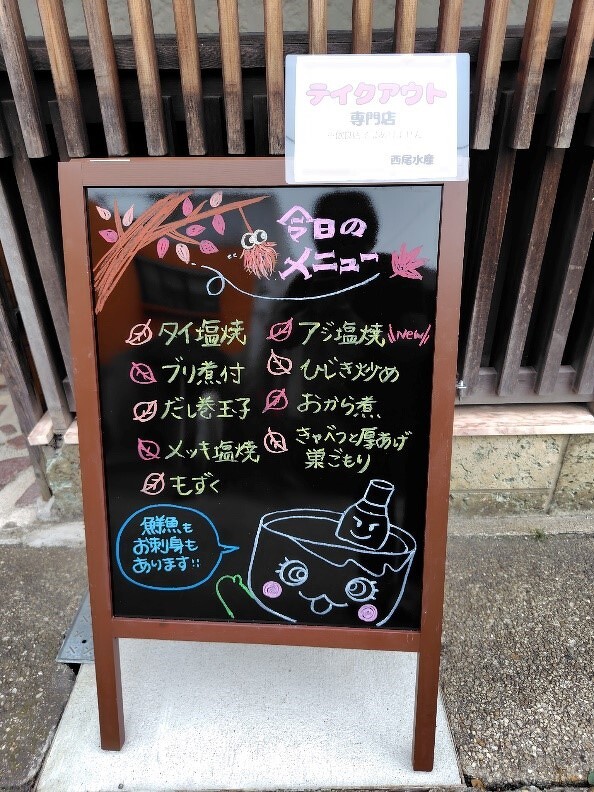 テイクアウト
専門店
西尾水産
今日の
メニュー
タイ塩焼
ブリ煮付
だし巻玉子
メッキ塩焼
もずく
アジ塩焼 New
ひじき炒め
おから煮
きゃべつと厚あげ
巣ごもり
鮮魚も
お刺身も
あります!!